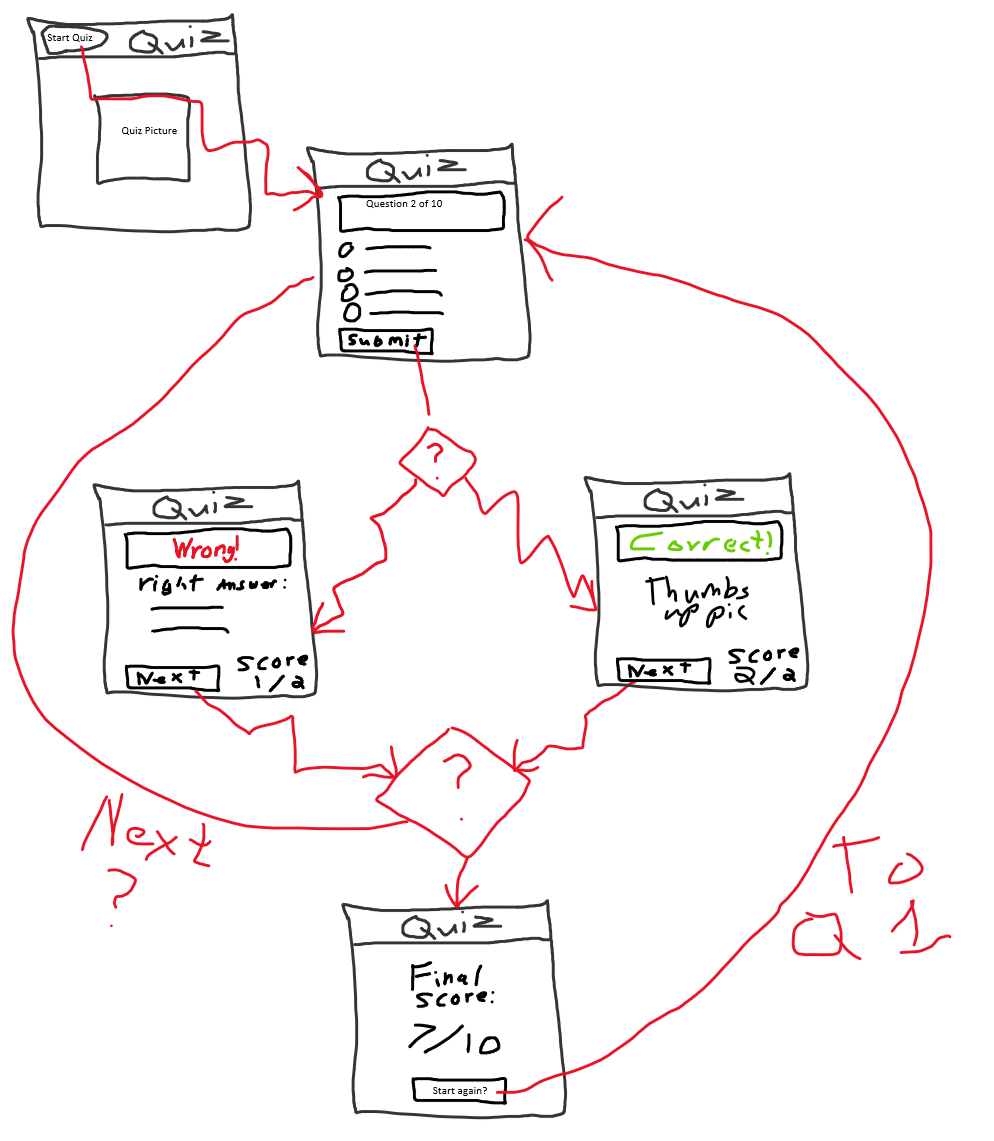 Start Quiz
Quiz
Quiz Picture
Quiz
Question 2 of 10
Submit
?
Quiz
Wrong!
right Answer:
Next
Score
1/2
Quiz
Correct!
Thumbs
up pic
Next
Score
2/2
?
Next
?
To
Q 1
Quiz
Final
Score:
7/10
Start again?